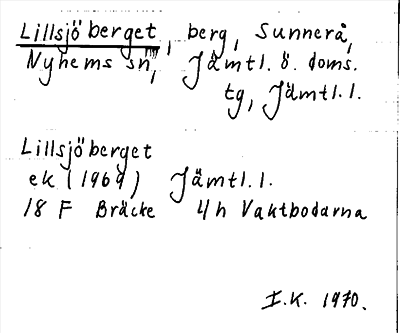 Lillsjöberget, berg, Sunnerå,
Nyhems sn, Jämtl. ö. doms.
tg, Jämtl. l.
Lillsjöberget
ek (1969) Jämtl. l.
18 F Bräcke 4h Vaktbodarna
I.K. 1970.